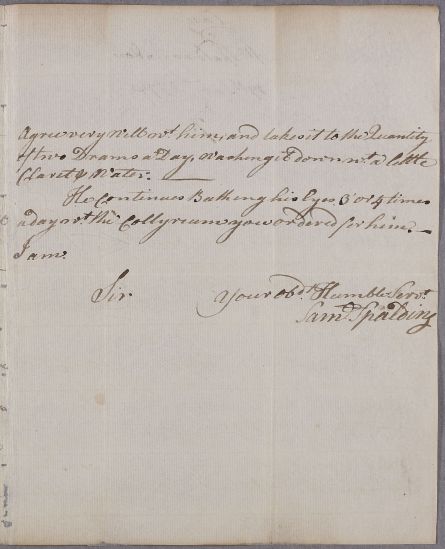 agree very well wt. him, and takes it to the Quantity
of two Drams a Day, washing it down wt. a little
Claret & Water.
He Continues Bathing his Eyes 3 or 4 times
a day wt. the Collyrium you ordered for him.
I am.
Sir.
Your obdt. Humble Servt.
Saml. Spalding